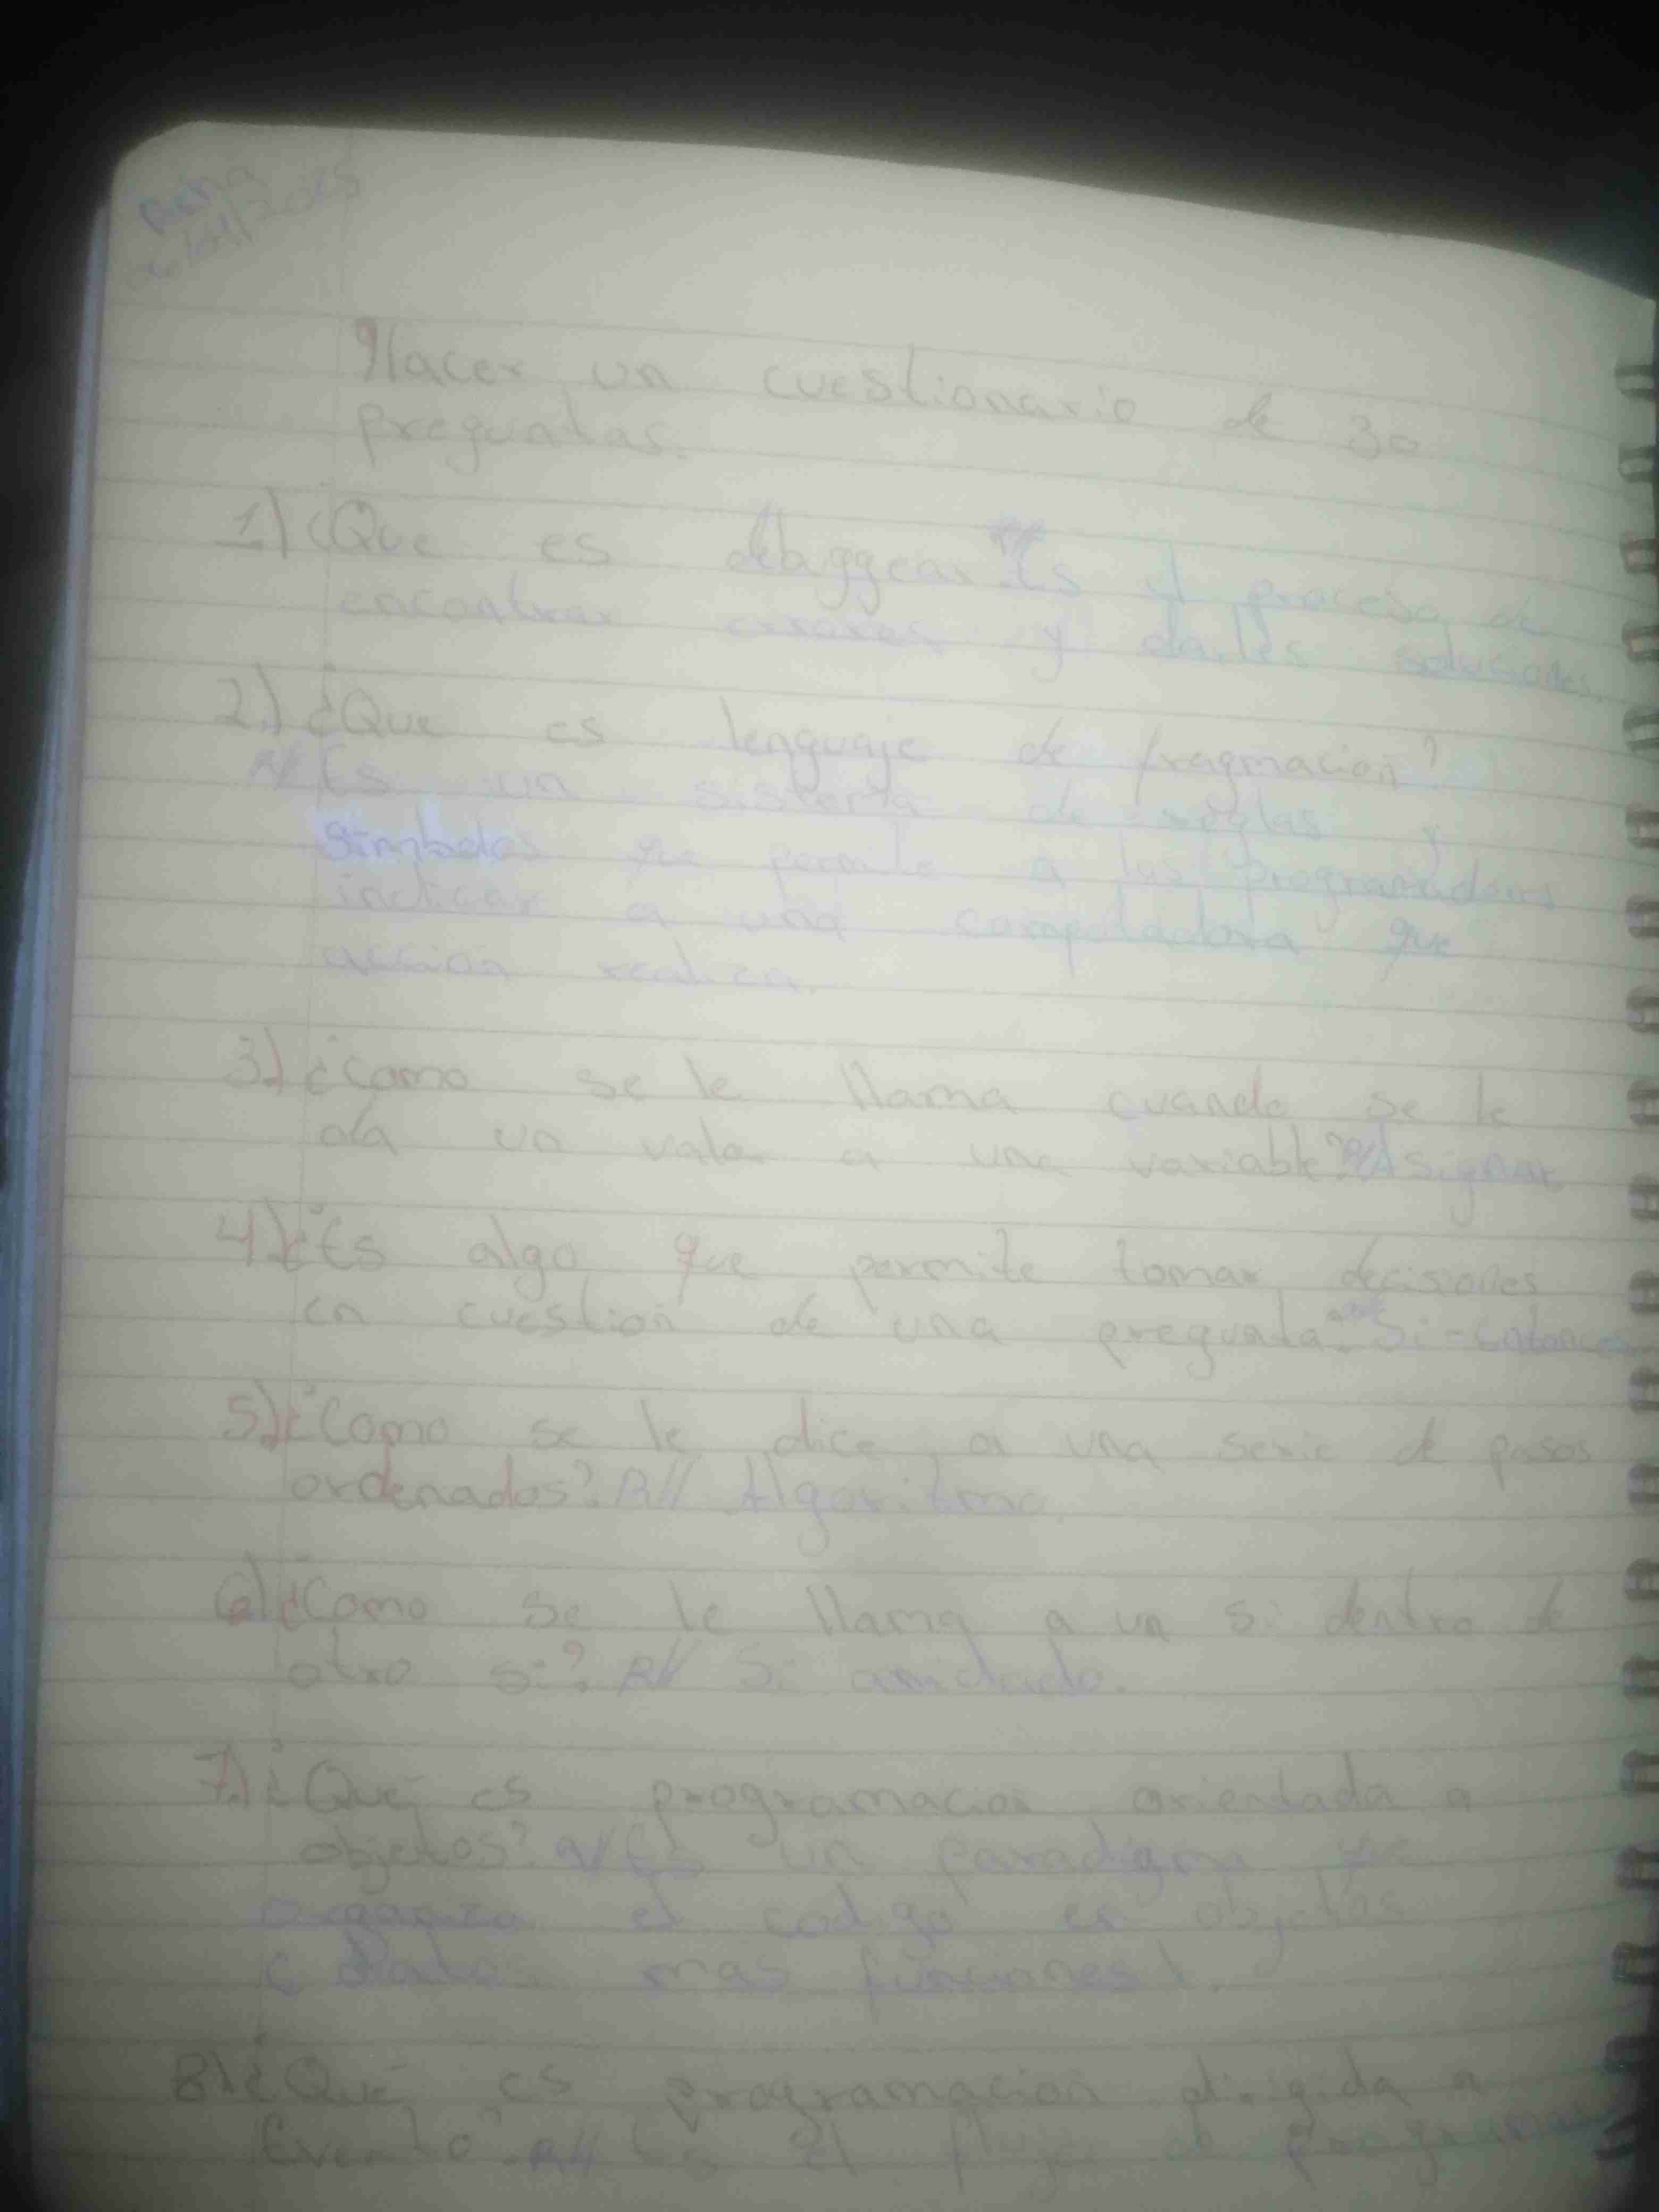 Fecha
Hacer un cuestionario de 30
preguntas.
1) ¿Que es debuggear? Es el proceso de
encontrar errores y darles soluciones.
2) ¿Que es lenguaje de
R// Es un sistema de reglas y
simbolos que permite a los programadores
indicar a una computadora que
accion realizar.
3) ¿Como se le llama cuando se le
da un valor a una variable? R// Asignar
4) ¿Es algo que permite tomar decisiones
en cuestion de una pregunta? Si-Entonces
5) ¿Como se le dice a una serie de pasos
ordenados? R// Algoritmo
6) ¿Como se le llama a un si dentro de
otro si? R// Si
7) ¿Que es programacion orientada a
objetos? R// Es un paradigma que
organiza el codigo en objetos
(Datos mas funciones).
8) ¿Que es programacion dirigida a
Evento? R// Es el flujo de